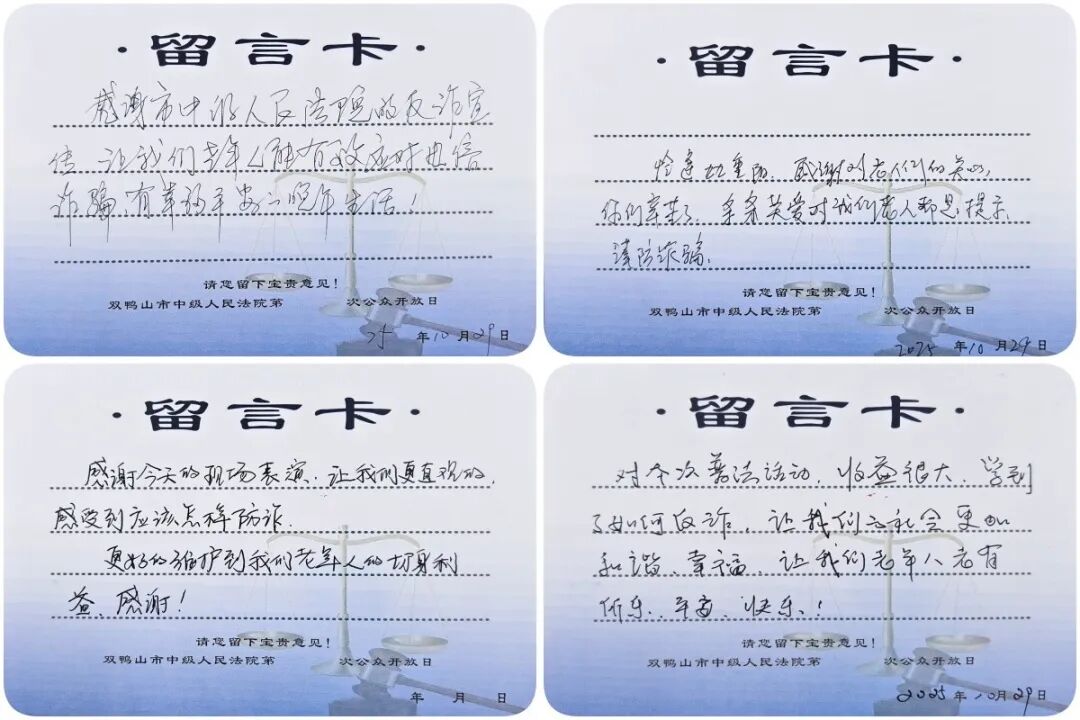 ·留言卡·
感谢市中级人民法院的反诈宣
传,让我们老年人能有效应对电信
诈骗,有幸福平安的晚年生活!
请您留下宝贵意见!
双鸭山市中级人民法院第 次公众开放日
25年10月29日
·留言卡·
感谢对老人们的关心,
你们辛苦了,
对我们老人都是提示,
谨防诈骗.
请您留下宝贵意见!
双鸭山市中级人民法院第 次公众开放日
2025年10月29日
·留言卡·
感谢今天的现场表演,让我们更直观的,
感受到应该怎样防诈.
更好的维护到我们老年人的切身利
益、感谢!
请您留下宝贵意见!
双鸭山市中级人民法院第 次公众开放日
年 月 日
·留言卡·
对本次普法活动,收益很大,学到
了如何反诈,让我们的社会更加
和谐、幸福,让我们老年人老有
所乐、平安、快乐、!
请您留下宝贵意见!
双鸭山市中级人民法院第 次公众开放日
2025年10月29日